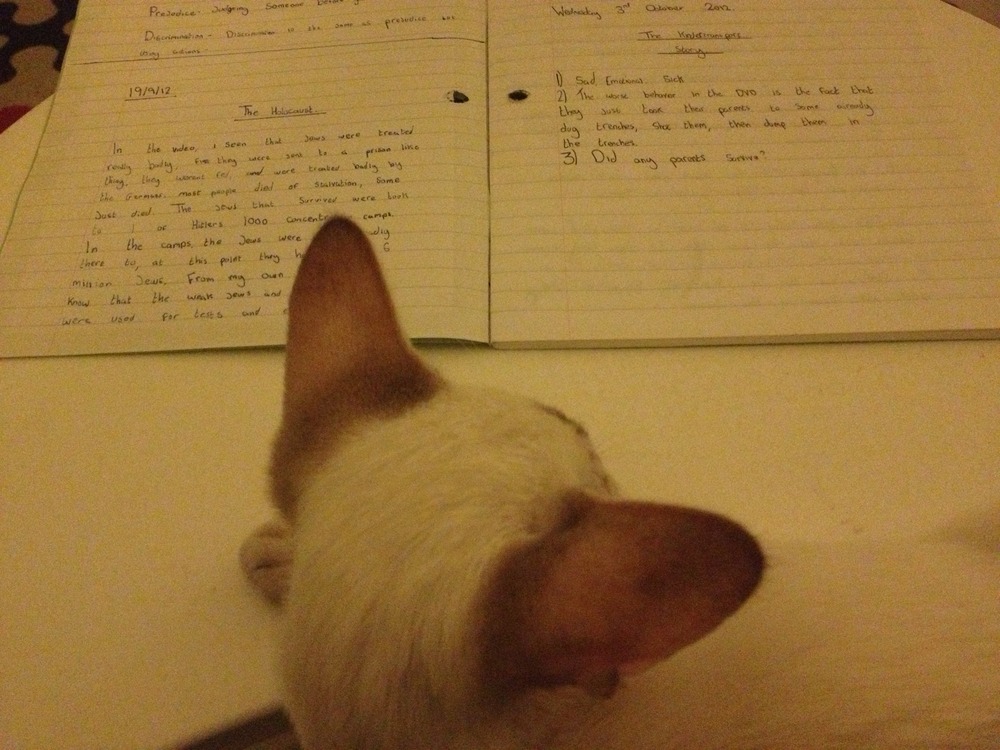 Prejudice - Judging Someone before
Discrimination - Discrimination is the same as prejudice but
using actions.
19/9/12.
The Holocaust.
In the video, I seen that Jews were treated
really badly. they were sent to a prison like
thing, they weren't fed, and were treated badly by
the Germans. most people died of starvation, Some
Just died. The Jews that Survived were took
to 1 of Hitlers 1000 concent camps.
In the camps, the Jews were
there to, at this point they h 6
million Jews. From my own
Know that the weak Jews and
were used for tests and
Wednesday 3rd October 2012.
The
Story
1) Sad Emotional. Sick
2) The worse behavior in the DVD is the fact that
they Just took their parents to Some already
dug trenches, Shot them, then dump them in
the trenches.
3) Did any parents Survive?